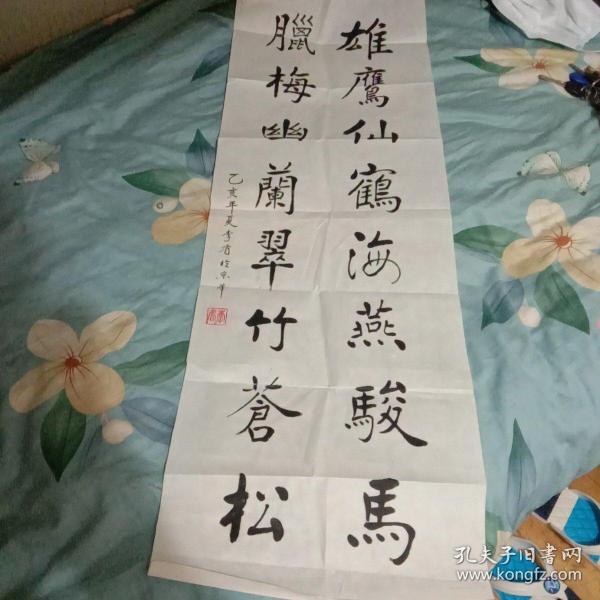 雄鷹仙鶴海燕駿馬
臘梅幽蘭翠竹蒼松
乙亥年夏李省
孔夫子旧书网
www.kongfz.com